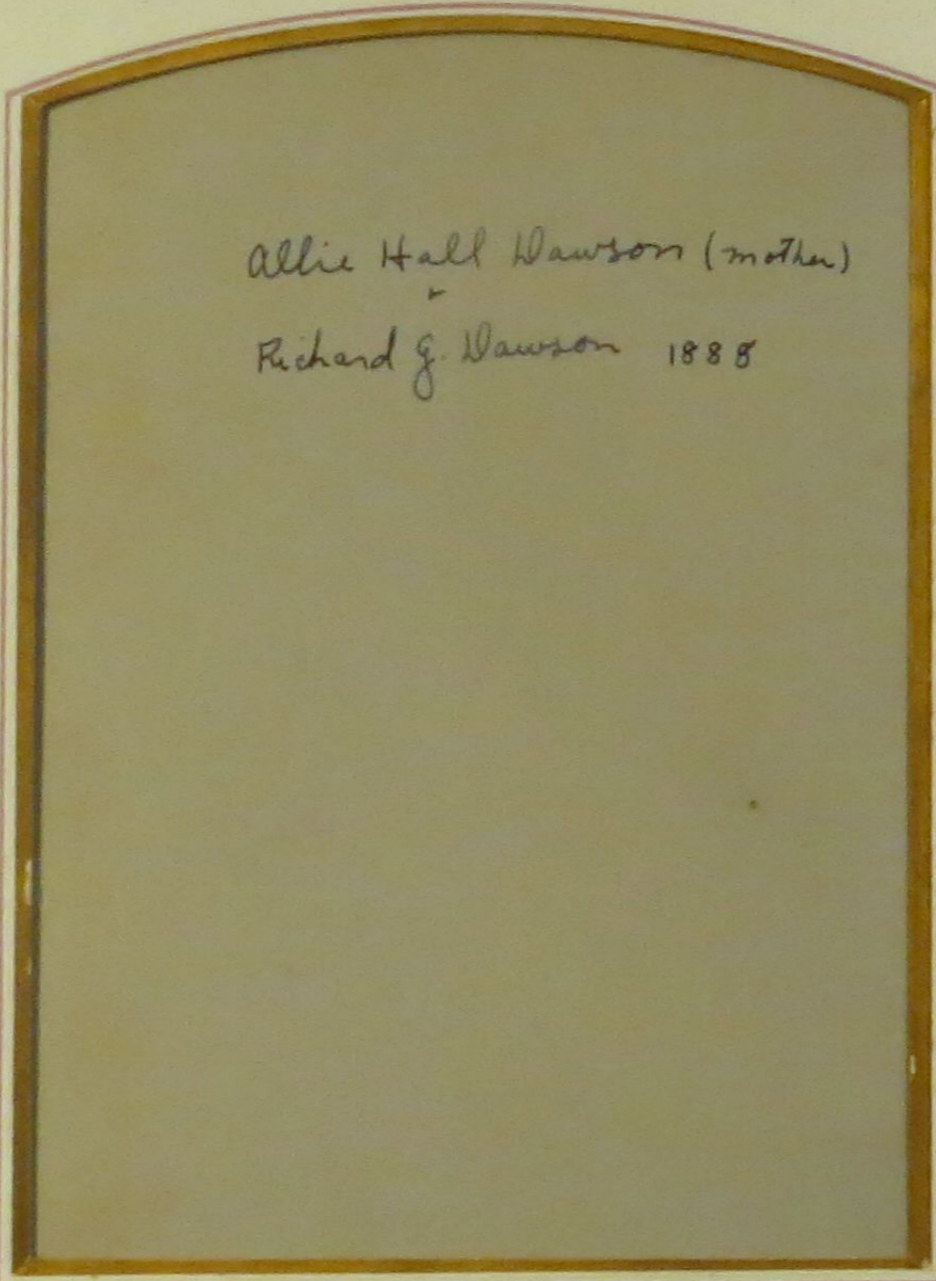 Allie Hall Dawson (mother)
&
Richard G. Dawson 1888